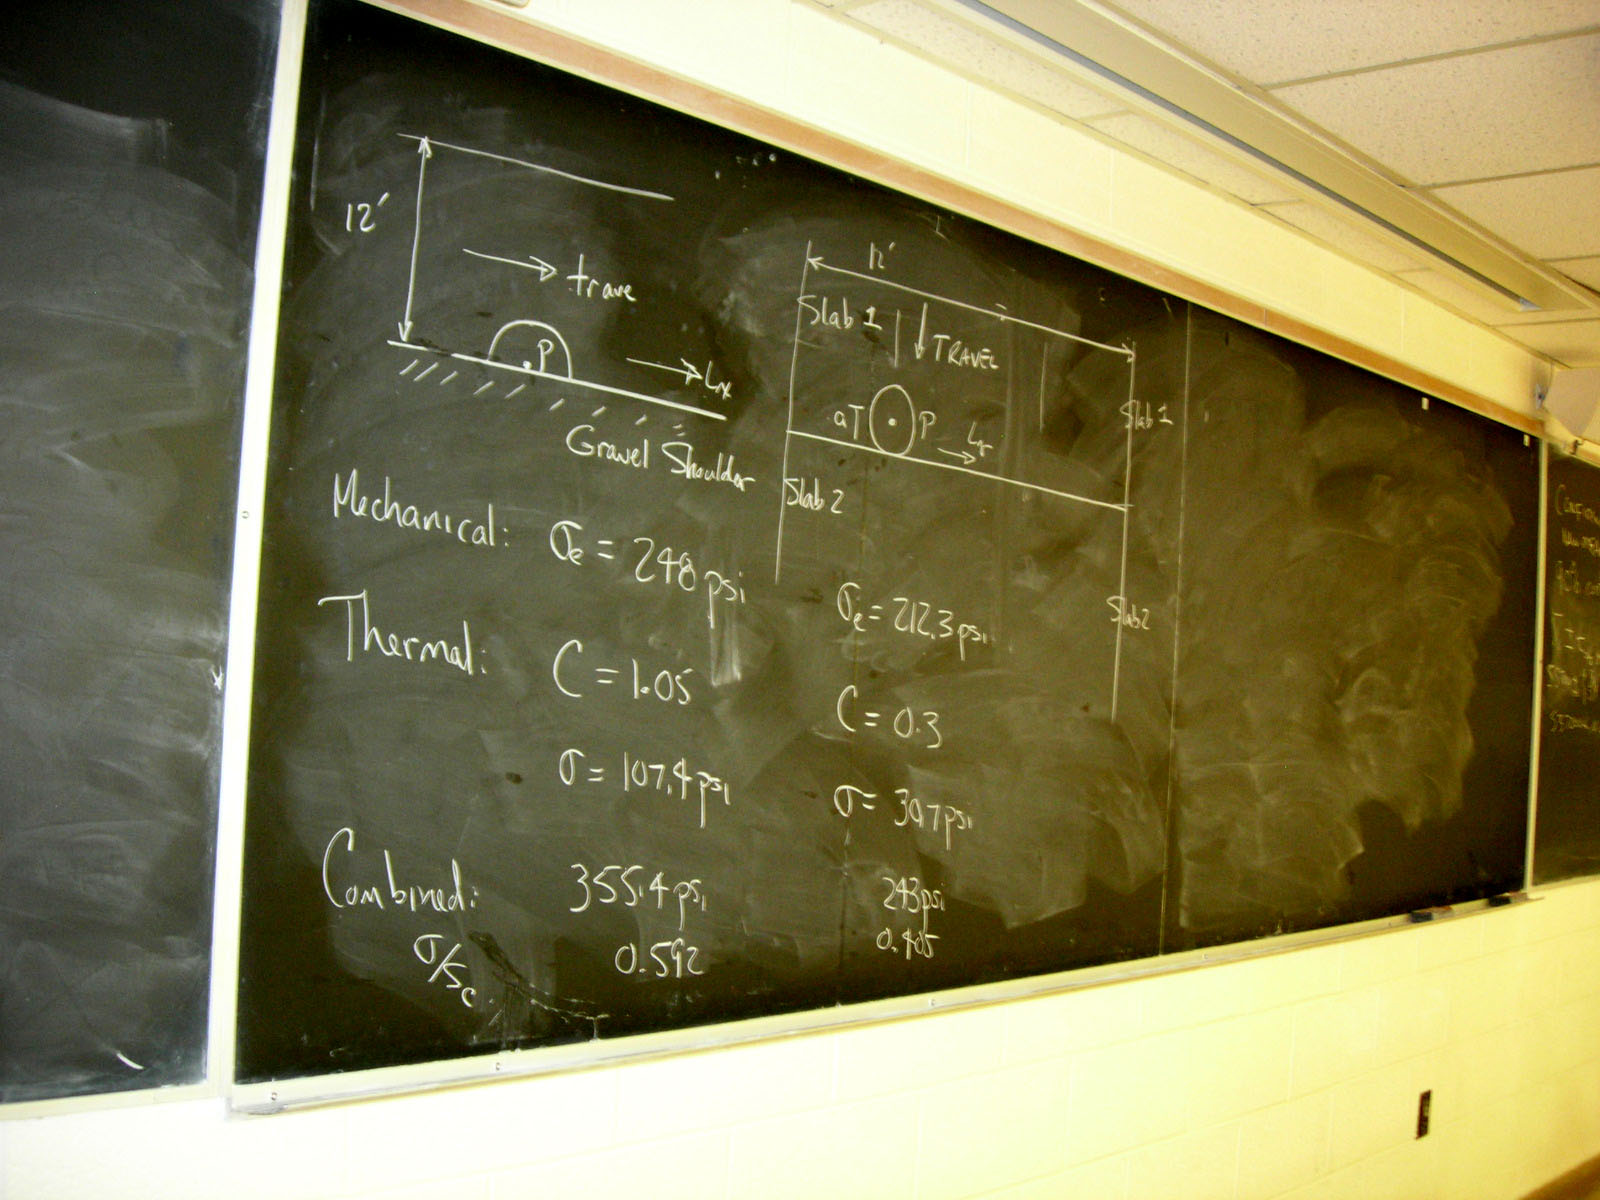 12'
trave
P
Lx
Gravel Shoulder
12'
Slab 1
TRAVEL
Slab 1
aT
P
Slab 2
Slab 2
Mechanical: σe = 248 psi
σe = 212.3 psi
Thermal: C = 1.05
C = 0.3
σ = 107.4 psi
σ = 30.7 psi
Combined: 355.4 psi
243 psi
σ/Sc 0.592
0.405